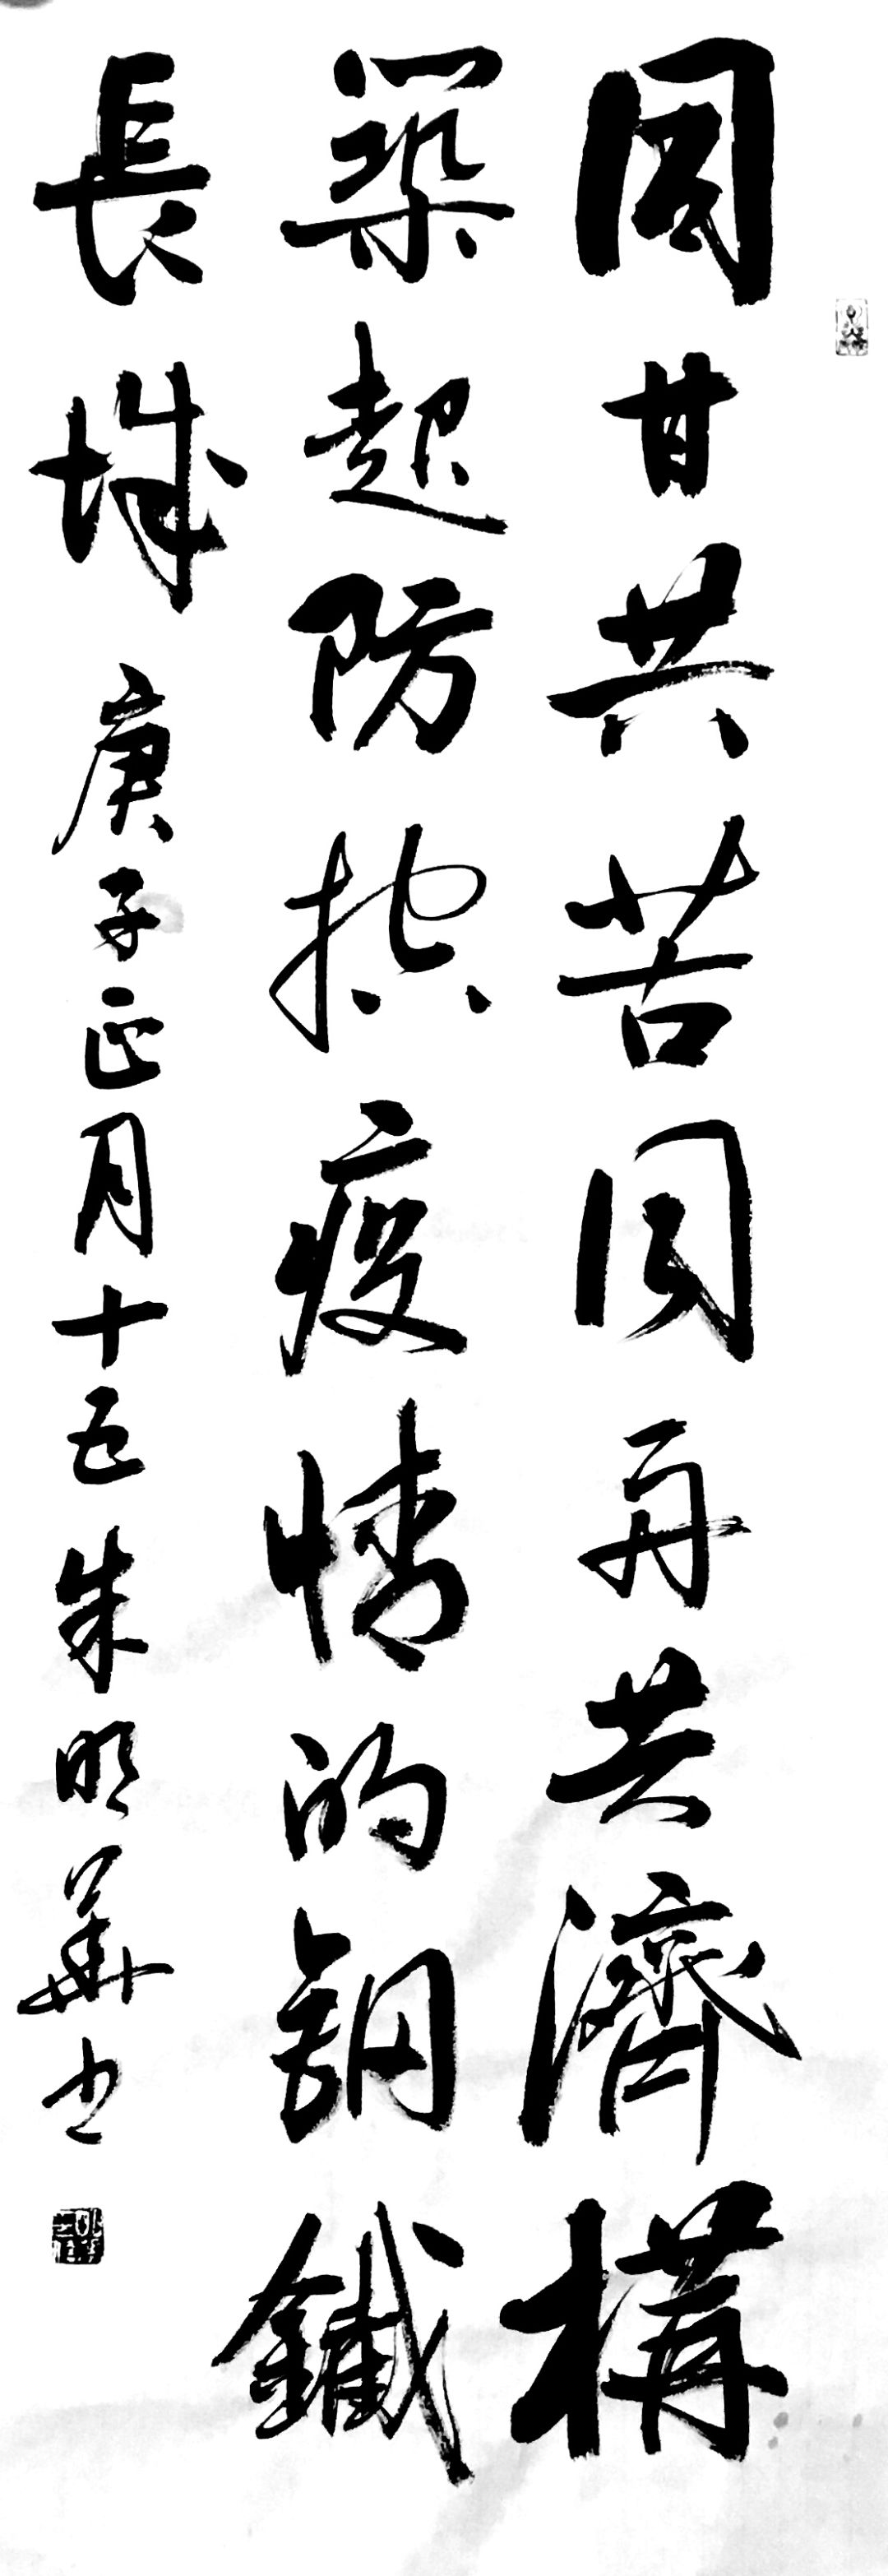 同甘共苦同舟共濟構
築起防控疫情的鋼鐵
長城
庚子正月十五朱明華书